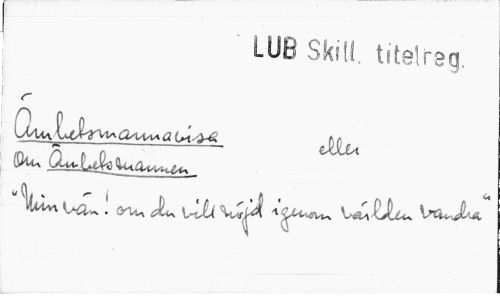 LUB Skill. titelreg.
Ämbetsmannavisa eller
om Ämbetsmannen
"Min vän! om du vill nöjd igenom världen vandra"